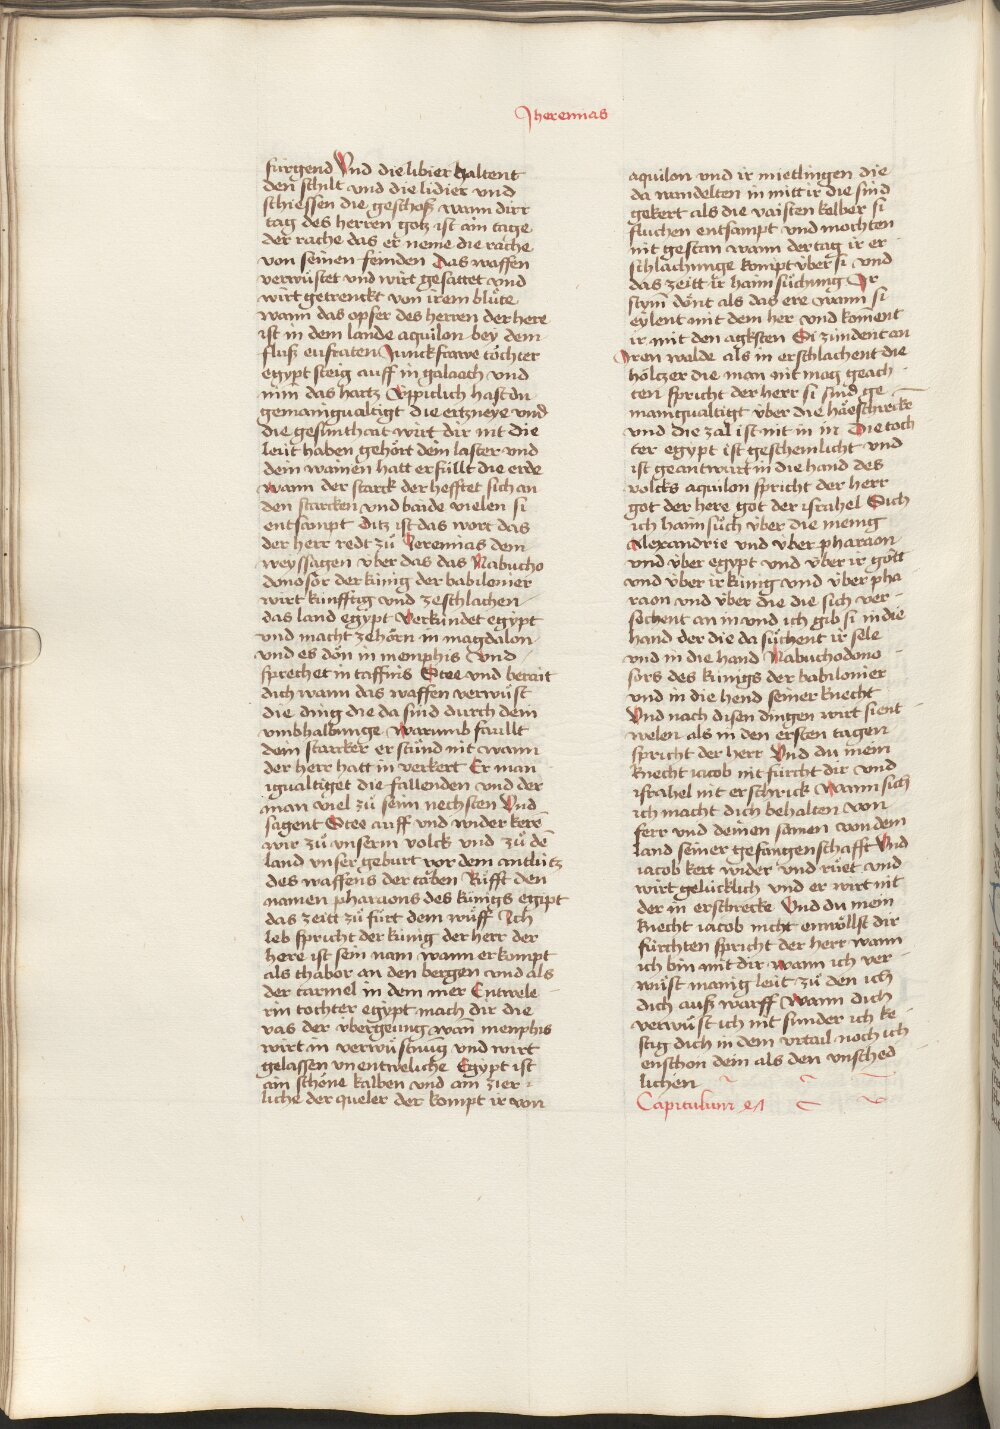 Jheremias
fürgend Vnd die libier haltent
den schilt vnd die lidier vnd
schiessen die geschoß wann dirr
tag des herren gotz ist ain tage
der rache das er neme die rache
von seinen feinden Das waffen
verwüstet vnd wirt gesattet vnd
wirt getrenckt von irem blůte
wann das opfer des herren der here
ist in dem lande aquilon bey dem
fluß eufraten Junckfrawe tochter
egypt steig auff in galaath vnd
nim das hartz Vppiclich hast du
gemanigualtigt die ertzneye vnd
die gesunthait wirt dir nit Die
leüt haben gehört dem laster vnd
dein wainen hatt erfüllt die erde
wann der starck der hefftet sich an
den starcken vnd baide vielen si
entsampt Ditz ist das wort das
der herr redt zů Jeremias dem
weyssagen über das das Nabucho
donosor der künig der babilonier
wirt künfftig vnd zeschlachen
das land egypt Verkündet egypt
vnd macht zehörn in magdalon
vnd es dön in memphis vnd
sprechet in taffnis Stee vnd berait
dich wann das waffen verwüst
die ding die da sind durch dein
vmbhalbunge Warumb faullt
dem starcker er stůnd nit wann
der herr hatt in verkert Er man
igualtiget die fallenden vnd der
man viel zů seim nechsten Vnd
sagent Stee auff vnd wider kerē
wir zů vnserm volck vnd zů dē
land vnser geburt vor dem antlütz
des waffens der taben Růfft den
namen pharaons des künigs egipt
das zeitt zů fürt dem wůff Ich
leb spricht der künig der herr der
here ist sein nam wann er kompt
als thabor an den bergen vnd als
der carmel in dem mer Entwele
rin tochter egypt mach dir die
vas der vbergeung wañ memphis
wirt in verwüstnuӯ vnd wirt
gelassen vnentweliche Egypt ist
ain schöne kalben vnd ain zier
liche der queler der kompt ir von
aquilon vnd ir mietlingen die
da wandelten in mitt ir die sind
gekert als die vaisten kelber si
fluchen entsampt vnd mochten
nit gestan wann der tag ir er
schlachunge kompt über si vnd
das zeitt ir haimsůchung Ir
stym̄ dönt als das ere wann si
eylent mit dem her vnd koment
ir mit den agksten Si zündent an
Iren walde als in erschlachent die
höltzer die man nit mag geach
ten spricht der herr si sind ge
manigualtigt über die häeschrickē
vnd die zal ist nit in in Die toch
ter egypt ist gescheinlicht vnd
ist geantwurt in die hand des
volcks aquilon spricht der herr
got der here got der israhel Sich
ich haimsůch über die menig
Alexandrie vnd über pharaon
vnd über egypt vnd über ir gött
vnd über ir künig vnd über pha
raon vnd über die die sich ver
sechent an in vnd ich gib si in die
hand der die da sůchent ir sele
vnd in die hand Nabuchodono
sors des künigs der babilonier
vnd in die hend seiner knecht
Vnd nach disen dingen wirt si ent
welen als in den ersten tagen
spricht der herr Vnd du mein
knecht iacob nit fürcht dir vnd
israhel nit erschrick Wann sich
ich macht dich behalten von
ferr vnd deinen samen von dem
land seiner gefangenschafft Vnd
iacob kert wider vnd růet vnd
wirt gelücklich vnd er wirt nit
der in erschrecke Vnd du mein
knecht iacob nicht enwöllst dir
fürchten spricht der herr wann
ich bin mit dir wann ich ver
wüst manig leüt zů den ich
dich auß warff Wann dich
verwüst ich nit sunder ich ke
stig dich in dem vrtail noch ich
enschon dein als den vnsched
lichen
Capitulum